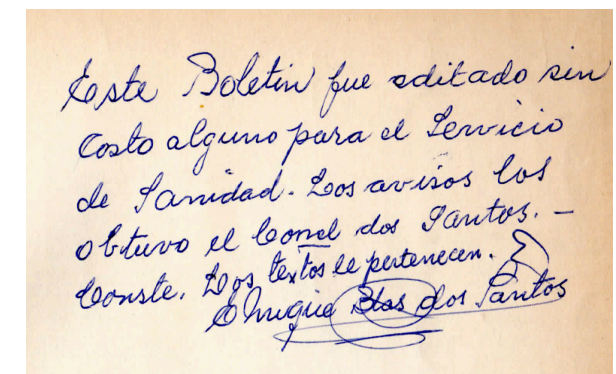 Este Boletin fue editado sin
Costo alguno para el Servicio
de Sanidad. Los avisos los
obtuvo el Conel dos Santos. —
Conste. Los textos le pertenecen.
Enrique Blas dos Santos